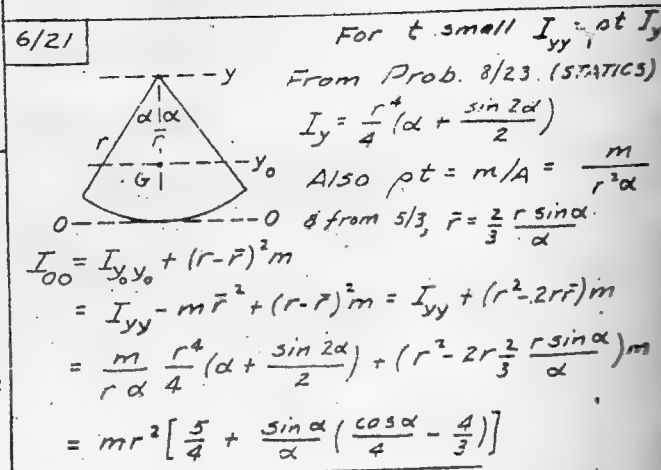 6/21
For t small I_yy = ρt I_y
From Prob. 8/23 (STATICS)
I_y = r⁴/4 (α + sin 2α/2)
Also ρt = m/A = m/r²α
& from 5/3, r̄ = 2/3 r sinα/α
y
α α
r r̄
G y₀
O O
I_OO = I_y₀y₀ + (r-r̄)²m
= I_yy - m r̄² + (r-r̄)²m = I_yy + (r²-2rr̄)m
= m/r α r⁴/4 (α + sin 2α/2) + (r² - 2r 2/3 r sinα/α)m
= mr² [5/4 + sin α/α (cosα/4 - 4/3)]